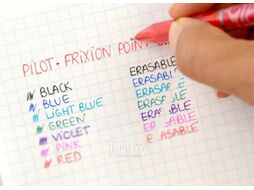 PILOT · FRIXION POINT
BLACK ERASABLE
BLUE ERASABLE
LIGHT BLUE ERASABLE
GREEN ERASABLE
VIOLET ERASABLE
PINK ERASABLE
RED ERASABLE